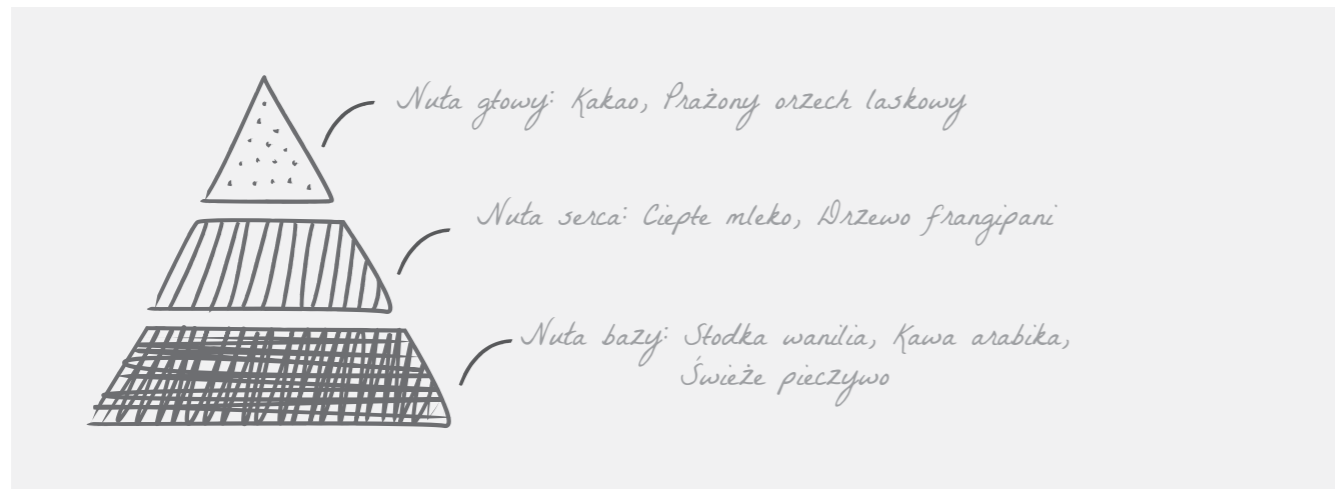 Nuta głowy: Kakao, Prażony orzech laskowy
Nuta serca: Ciepłe mleko, Drzewo frangipani
Nuta bazy: Słodka wanilia, Kawa arabika,
Świeże pieczywo